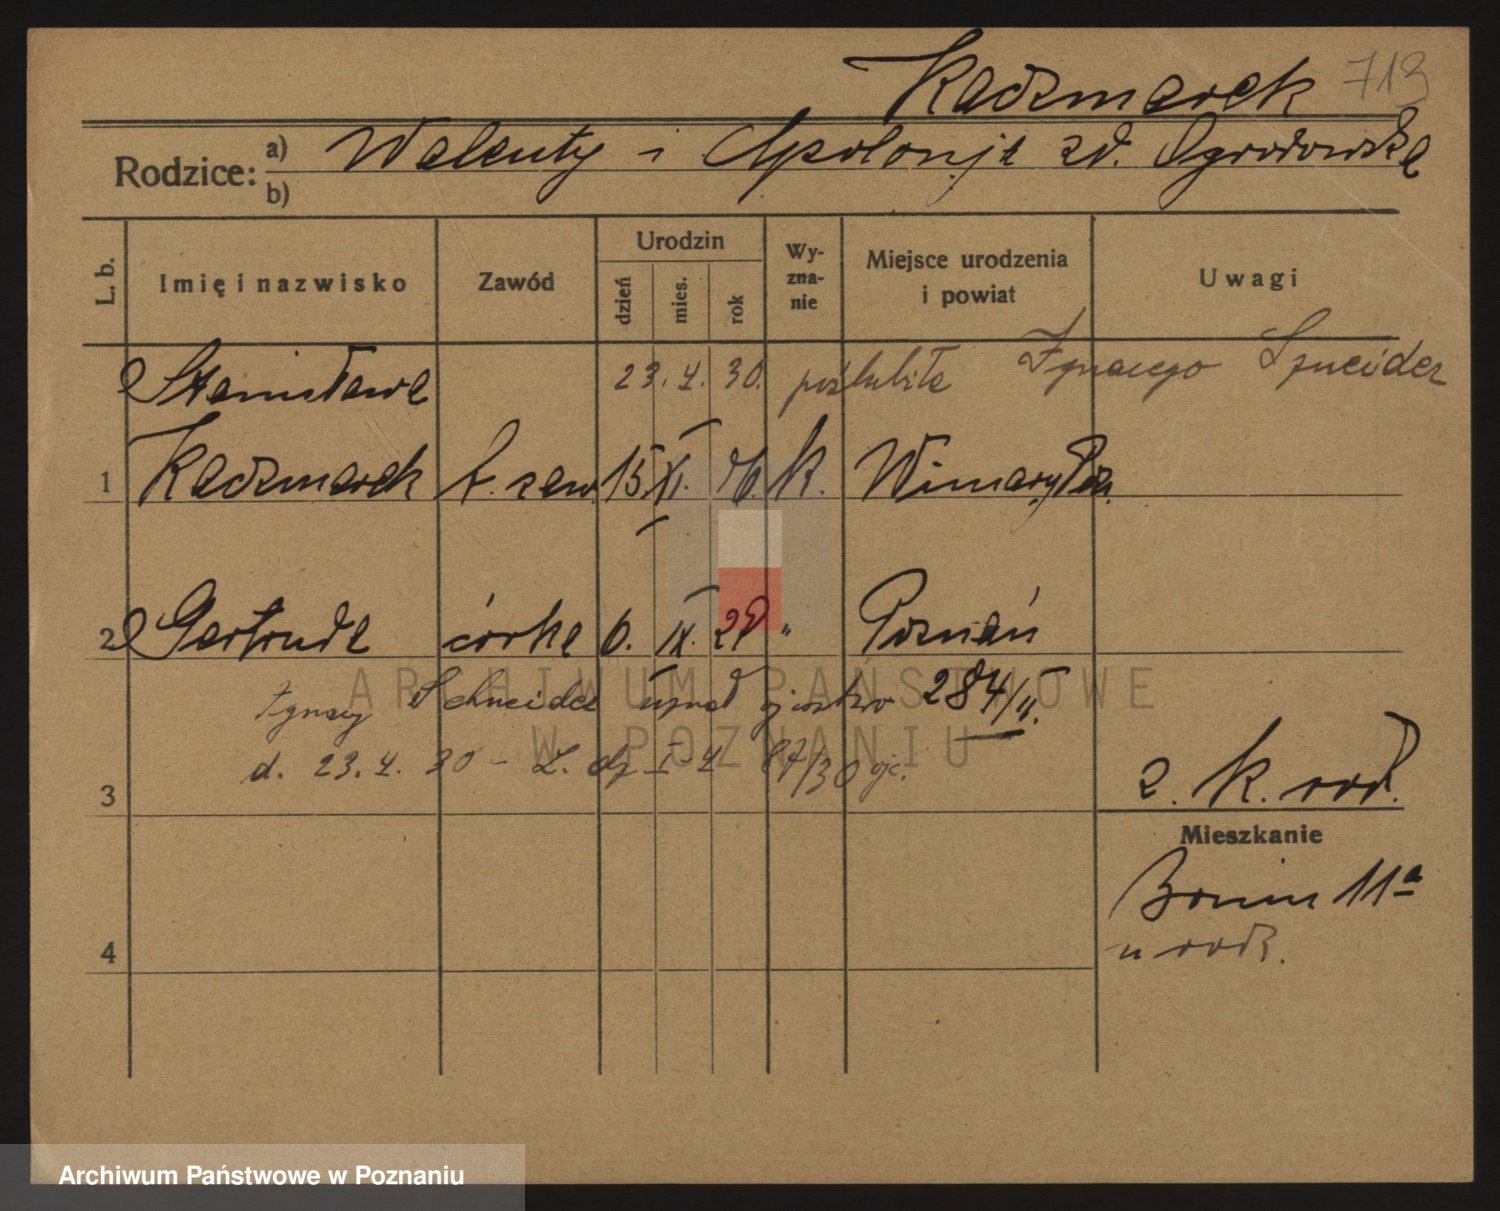 Kaczmarek 713
Rodzice: a) Walenty i Apolonja zd. Ogrodowska
b)
L. b. Imię i nazwisko Zawód Urodzin dzień mies. rok Wy-zna-nie Miejsce urodzenia i powiat Uwagi
Stanisława 23.4.30. poślubiła Ignacego Szneider
1 Kaczmarek b. zaw. 15 XI. 06. k. Winiary Poz.
2 Gertruda córka 6. IX. 29 " Poznań
Ignacy Schneider uznał ojcostwo 284/II.
d. 23.4.30 - L. dz I-4 87/30 ojc.
3 z. k. rod.
Mieszkanie
Bonin 11a
u rodz.
4
ARCHIWUM PAŃSTWOWE
W POZNANIU
Archiwum Państwowe w Poznaniu